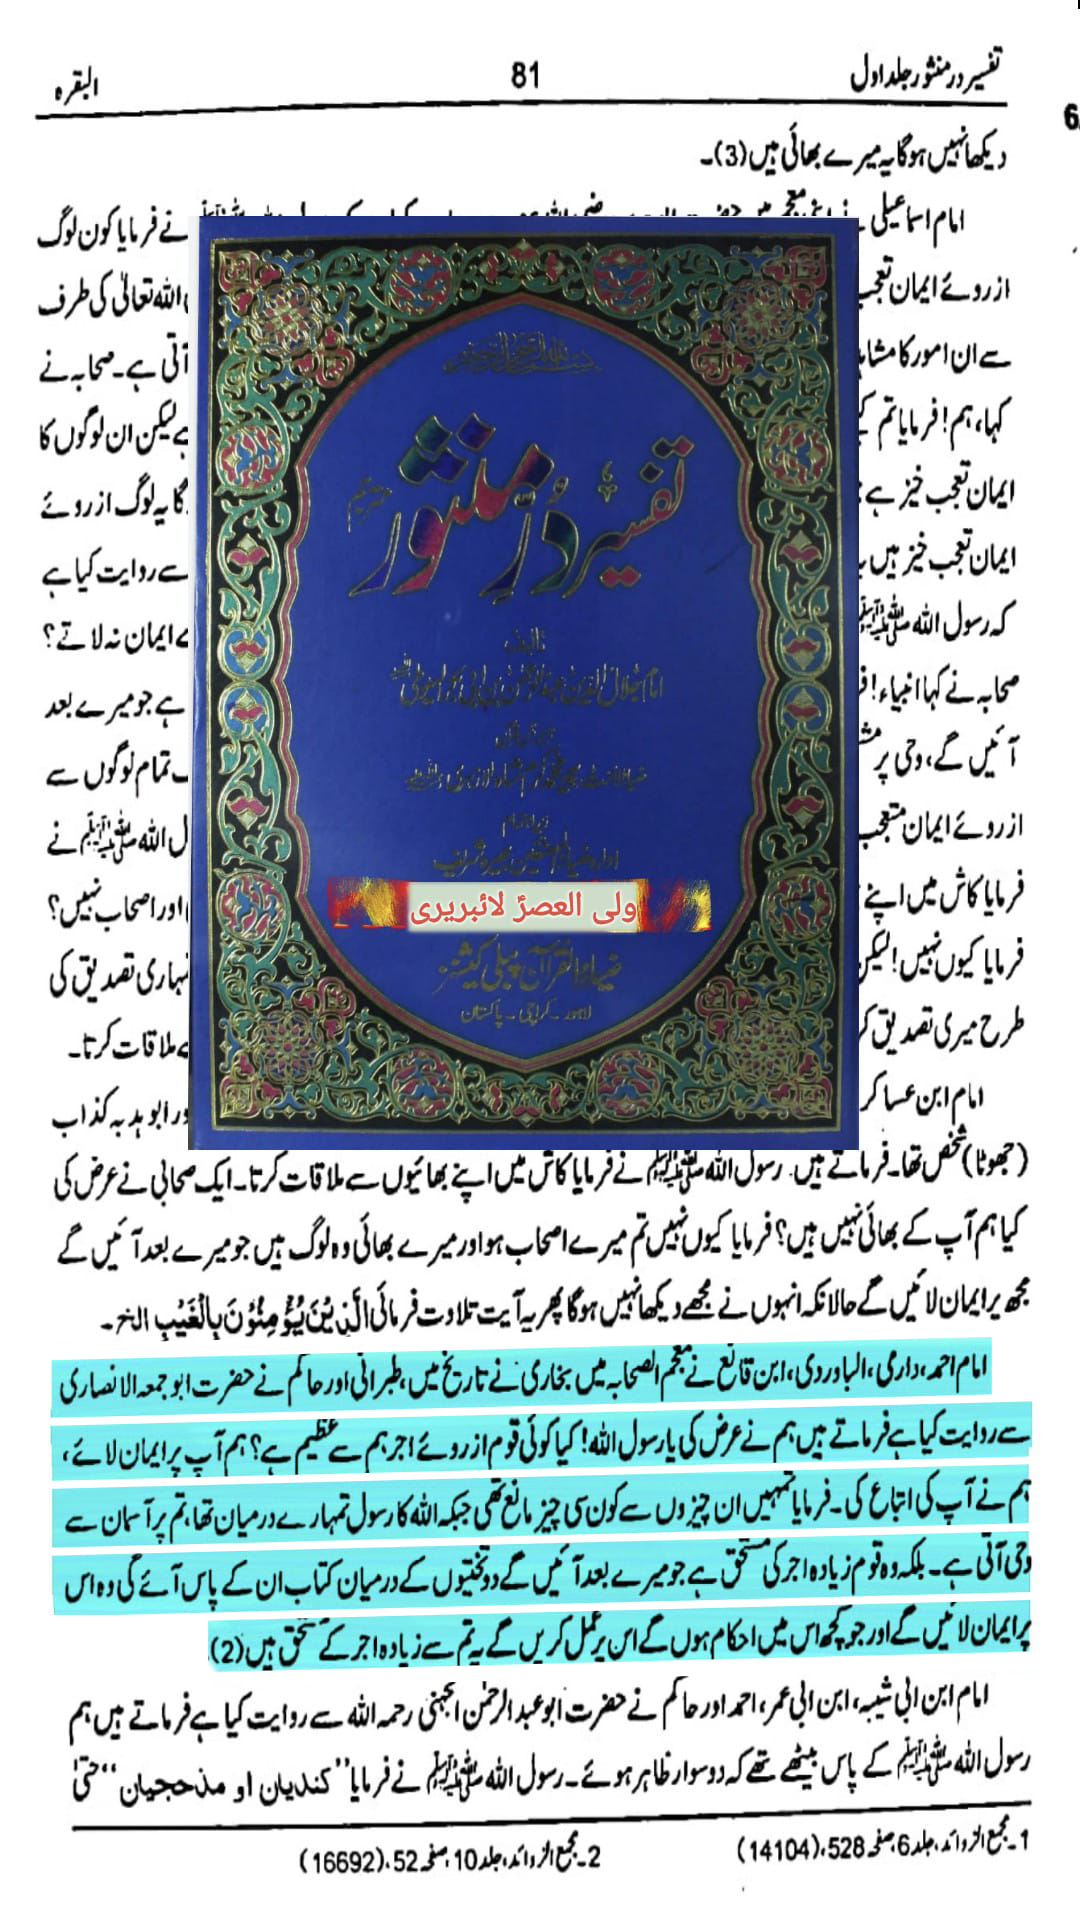 تفسیر در منثور جلد اول
81
البقرہ
6
دیکھا نہیں ہوگا یہ میرے بھائی ہیں (3)۔
امام اسماعیلی
نے فرمایا کون لوگ
از روئے ایمان تعجب
اللہ تعالیٰ کی طرف
سے ان امور کا
آتی ہے۔ صحابہ نے
کہا، ہم! فرمایا تم
لیکن ان لوگوں کا
ایمان تعجب خیز ہے
گا یہ لوگ از روئے
ایمان تعجب خیز ہیں
سے روایت کیا ہے
کہ رسول اللہ ﷺ
ایمان نہ لاتے؟
صحابہ نے کہا انبیاء!
ہے جو میرے بعد
آئیں گے، وحی پر
تمام لوگوں سے
از روئے ایمان متعجب
اللہ ﷺ نے
فرمایا کاش میں اپنے
اور اصحاب نہیں؟
فرمایا کیوں نہیں! لیکن
تصدیق کی
طرح میری تصدیق
ملاقات کرتا۔
امام ابن عساکر
اور ابو ہدبہ کذاب
تفسیر دُرِّ منثور
تالیف
امام جلال الدین عبد الرحمٰن بن ابی بکر السیوطی
زیر اہتمام
ادارہ ضیاء المصنفین بھیرہ شریف
ولی العصرؑ لائبریری
ضیاء القرآن پبلی کیشنز
لاہور - کراچی - پاکستان
(جھوٹا) شخص تھا۔ فرماتے ہیں رسول اللہ ﷺ نے فرمایا کاش میں اپنے بھائیوں سے ملاقات کرتا۔ ایک صحابی نے عرض کی
کیا ہم آپ کے بھائی نہیں ہیں؟ فرمایا کیوں نہیں تم میرے اصحاب ہو اور میرے بھائی وہ لوگ ہیں جو میرے بعد آئیں گے
مجھ پر ایمان لائیں گے حالانکہ انہوں نے مجھے دیکھا نہیں ہوگا پھر یہ آیت تلاوت فرمائی الَّذِیْنَ یُؤْمِنُوْنَ بِالْغَیْبِ الخ۔
امام احمد، دارمی، الباوردی، ابن قانع نے معجم الصحابہ میں بخاری نے تاریخ میں، طبرانی اور حاکم نے حضرت ابو جمعہ الانصاری
سے روایت کیا ہے فرماتے ہیں ہم نے عرض کی یا رسول اللہ! کیا کوئی قوم از روئے اجر ہم سے عظیم ہے؟ ہم آپ پر ایمان لائے،
ہم نے آپ کی اتباع کی۔ فرمایا تمہیں ان چیزوں سے کون سی چیز مانع تھی جبکہ اللہ کا رسول تمہارے درمیان تھا، تم پر آسمان سے
وحی آتی ہے۔ بلکہ وہ قوم زیادہ اجر کی مستحق ہے جو میرے بعد آئیں گے دو تختیوں کے درمیان کتاب ان کے پاس آئے گی وہ اس
پر ایمان لائیں گے اور جو کچھ اس میں احکام ہوں گے اس پر عمل کریں گے یہ تم سے زیادہ اجر کے مستحق ہیں (2)
امام ابن ابی شیبہ، ابن ابی عمر، احمد اور حاکم نے حضرت ابو عبد الرحمٰن الجہنی رحمہ اللہ سے روایت کیا ہے فرماتے ہیں ہم
رسول اللہ ﷺ کے پاس بیٹھے تھے کہ دو سوار ظاہر ہوئے۔ رسول اللہ ﷺ نے فرمایا "کندیان او مذحجیان" حتیٰ
1۔ مجمع الزوائد، جلد 6، صفحہ 528، (14104)
2۔ مجمع الزوائد، جلد 10، صفحہ 52، (16692)